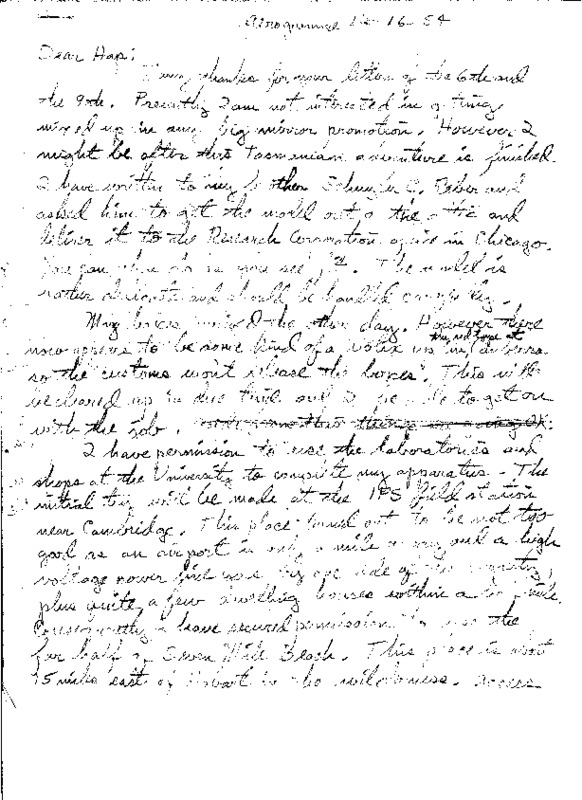 Aerogramme 12-16-54
Dear Hap:
Many thanks for your letters of the 6th and
the 9th. Presently I am not interested in getting
mixed up in any big mirror promotion. However I
might be after this Tasmanian adventure is finished.
I have written to my brother Schuyler C. Reber and
asked him to get the model out of the attic and
deliver it to the Research Corporation office in Chicago.
You can then do as you see fit. The model is
rather delicate and should be handled carefully.
My boxes arrived the other day. However there
now appears to be some kind of a
they not torps at
so the customs won't release the boxes. This will
be cleared up in due time and I be able to get on
with the job.
I have permission to use the laboratories and
shops at the University to complete my apparatus. The
initial try will be made at the IPS field station
near Cambridge. This place turned out to be not too
good as an airport is only a mile away and a high
voltage power line runs by one side of the property,
plus quite a few dwelling houses within a mile.
Consequently I have secured permission to use the
far half of Seven Mile Beach. This place is about
15 miles east of Hobart in the wilderness. Access